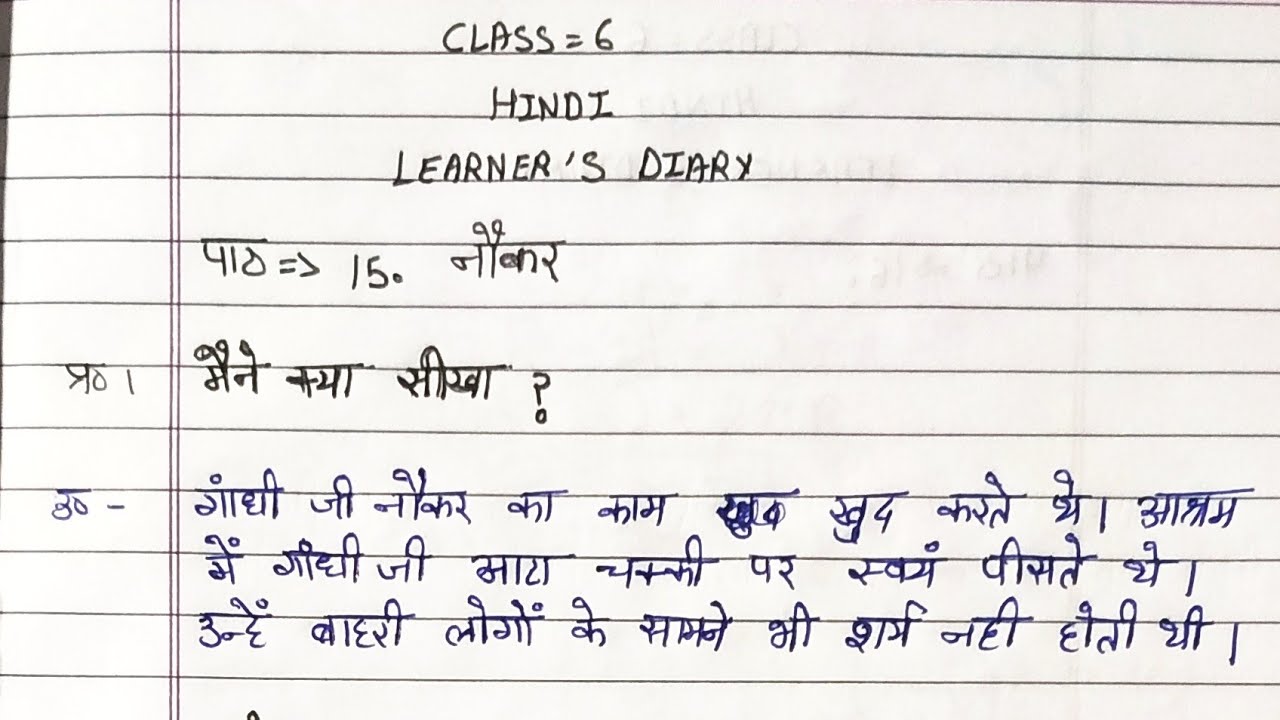 CLASS = 6
HINDI
LEARNER'S DIARY
पाठ => 15. नौकर
प्र० 1 मैंने क्या सीखा ?
उ० - गांधी जी नौकर का काम खुद करते थे। आश्रम
में गाँधी जी आटा चक्की पर स्वयं पीसते थे।
उन्हें बाहरी लोगों के सामने भी शर्म नही होती थी।